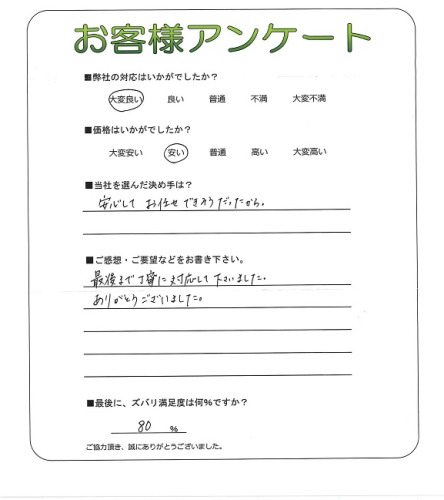 お客様アンケート
■弊社の対応はいかがでしたか?
大変良い 良い 普通 不満 大変不満
■価格はいかがでしたか?
大変安い 安い 普通 高い 大変高い
■当社を選んだ決め手は?
安心して お任せできそうだったから。
■ご感想・ご要望などをお書き下さい。
最後まで丁寧に対応して下さいました。
ありがとうございました。
■最後に、ズバリ満足度は何%ですか?
80 %
ご協力頂き、誠にありがとうございました。